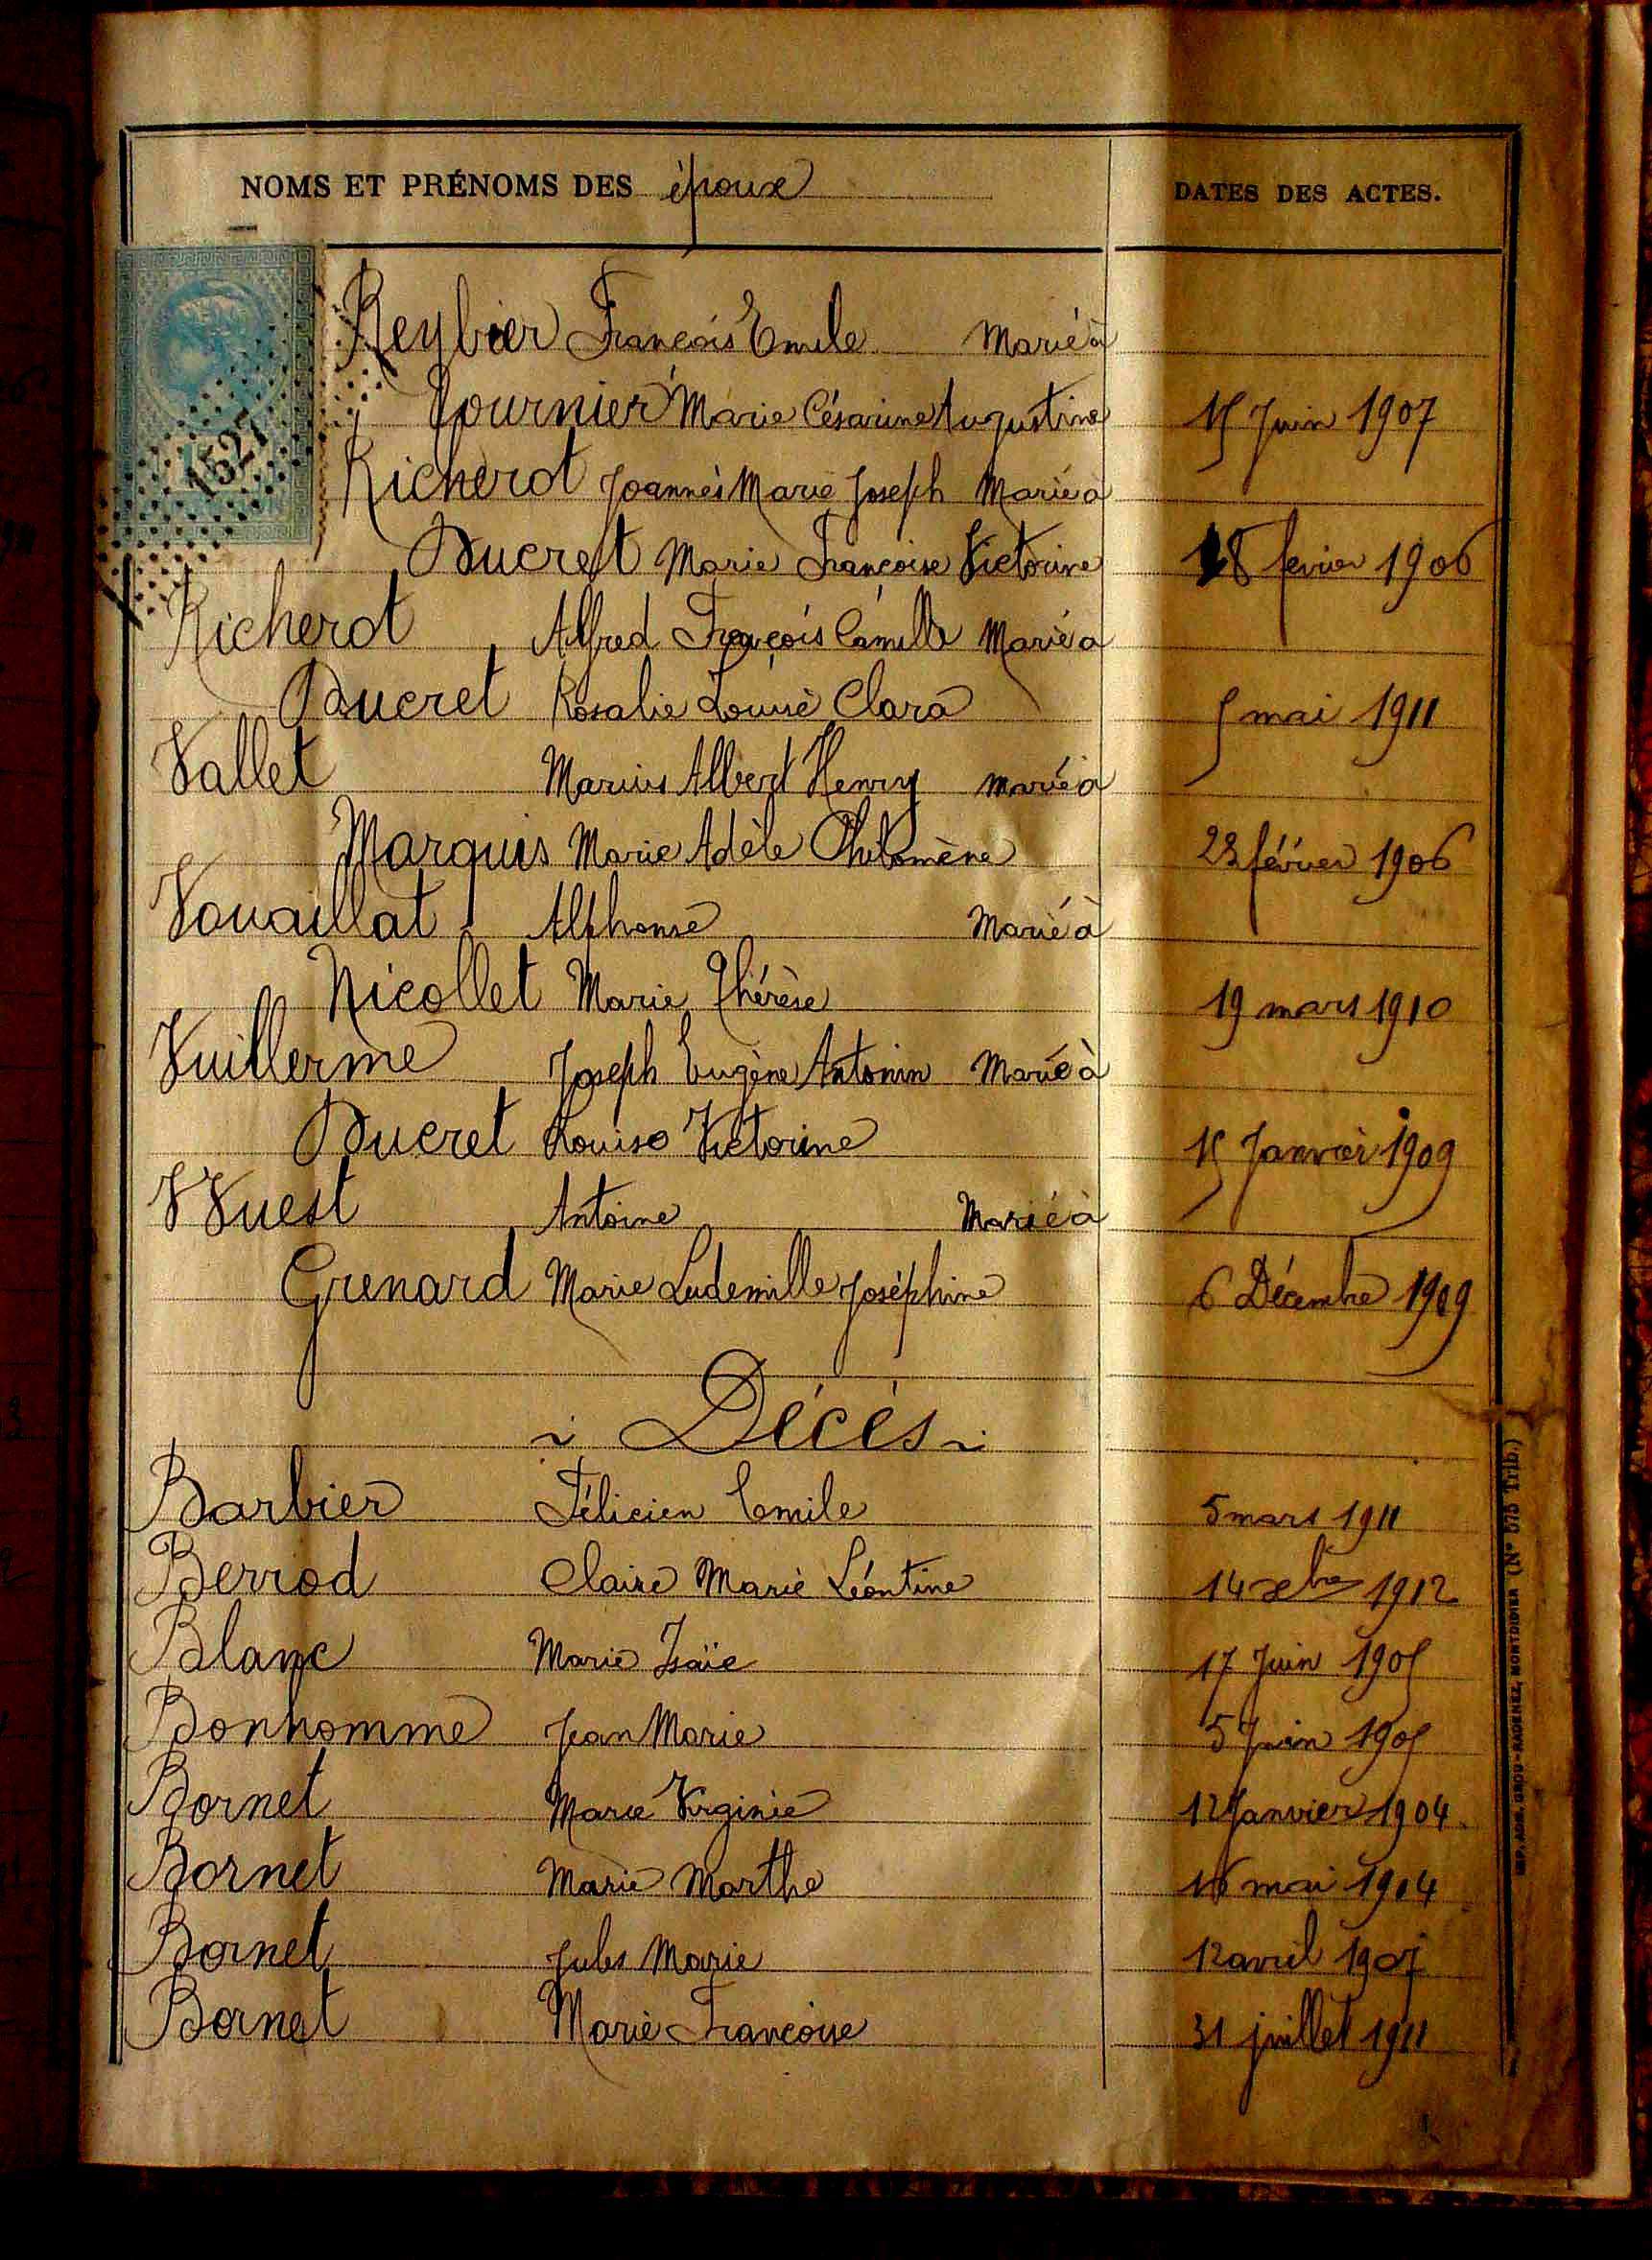 NOMS ET PRÉNOMS DES époux
DATES DES ACTES.
1527
Reybier François Emile Marié à
Fournier Marie Césarine Augustine 15 Juin 1907
Richerot Joannès Marie Joseph Marié à
Ducret Marie Françoise Victorine 18 fevrier 1906
Richerot Alfred François Camille Marié a
Ducret Rosalie Louise Clara 5 mai 1911
Vallet Marius Albert Henry marié à
Marquis Marie Adèle Philomène février 1906
Vouaillat Alphonse Marié à
Nicollet Marie Thérèse 19 mars 1910
Vuillerme Joseph Eugène Antonin Marié à
Ducret Louise Victorine 15 Janvier 1909
VVuest Antoine Marié à
Grenard Marie Ludemille Joséphine 6 Décembre 1909
~ Décès ~
Barbier Félicien Emile 5 mars 1911
Berrod Claire Marie Léontine 14 xbre 1912
Blanc Marie Isaïe 17 Juin 1905
Bonhomme Jean Marie 5 Juin 1905
Bornet Marie Virginie 12 Janvier 1904
Bornet Marie Marthe 16 mai 1904
Bornet Jules Marie 12 avril
Bornet Marie Françoise 31 juillet 1911
IMP. ADM. GROU-RADENEZ, MONTDIDIER (N° 575 Trib.)